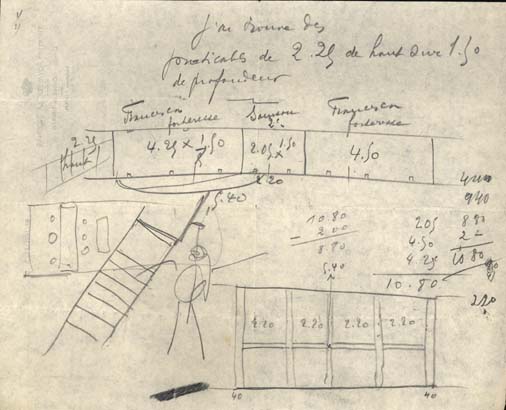 J'ai trouvé des
praticables de 2.25 de haut sur 1.50
de profondeur
Francesca
forteresse
2.25
haut
4.25 x 1.50
2.05 x 1.50
Francesca
forteresse
4.50
2.20
5.40
940
10.80
- 2.00
8.80
2.05
4.50
4.25
10.80
8.80
2 =
10 80
80
220
5.40
2.20 2.20 2.20 2.20
40 40